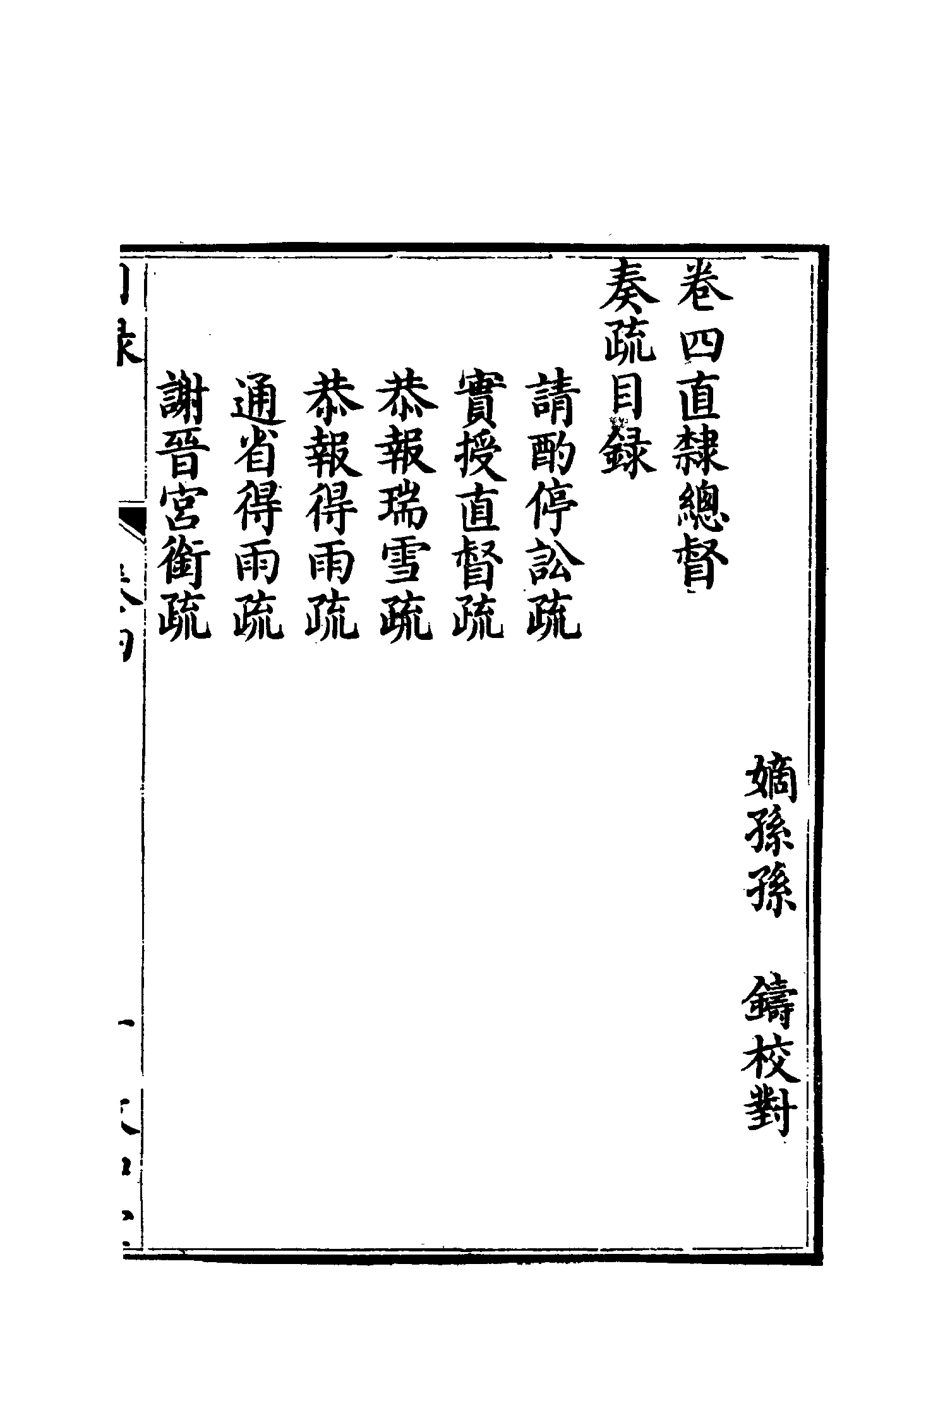 嫡孫孫　鑄校對
卷四直隸總督
奏疏目録
請酌停訟疏
實授直督疏
恭報瑞雪疏
恭報得雨疏
通省得雨疏
謝晉宮銜疏